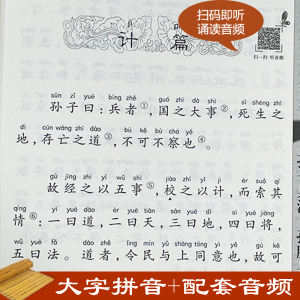 扫码即听
诵读音频
jì
计 篇
扫一扫 听音频
sūn zǐ yuē bīng zhě guó zhī dà shì sǐ shēng zhī
孙子曰：兵者①，国之大事②，死生之
dì cún wáng zhī dào bù kě bù chá yě
地，存亡之道③，不可不察也④。
gù jīng zhī yǐ wǔ shì jiào zhī yǐ jì ér suǒ qí
故经之以五事⑤，校之以计，而索其
qíng yī yuē dào èr yuē tiān sān yuē dì sì yuē jiàng
情⑥：一曰道，二曰天，三曰地，四曰将，
wǔ yuē fǎ dào zhě lìng mín yù shàng tóng yì yě gù kě
五曰法。道者，令民与上同意也，故可
大字拼音+配套音频